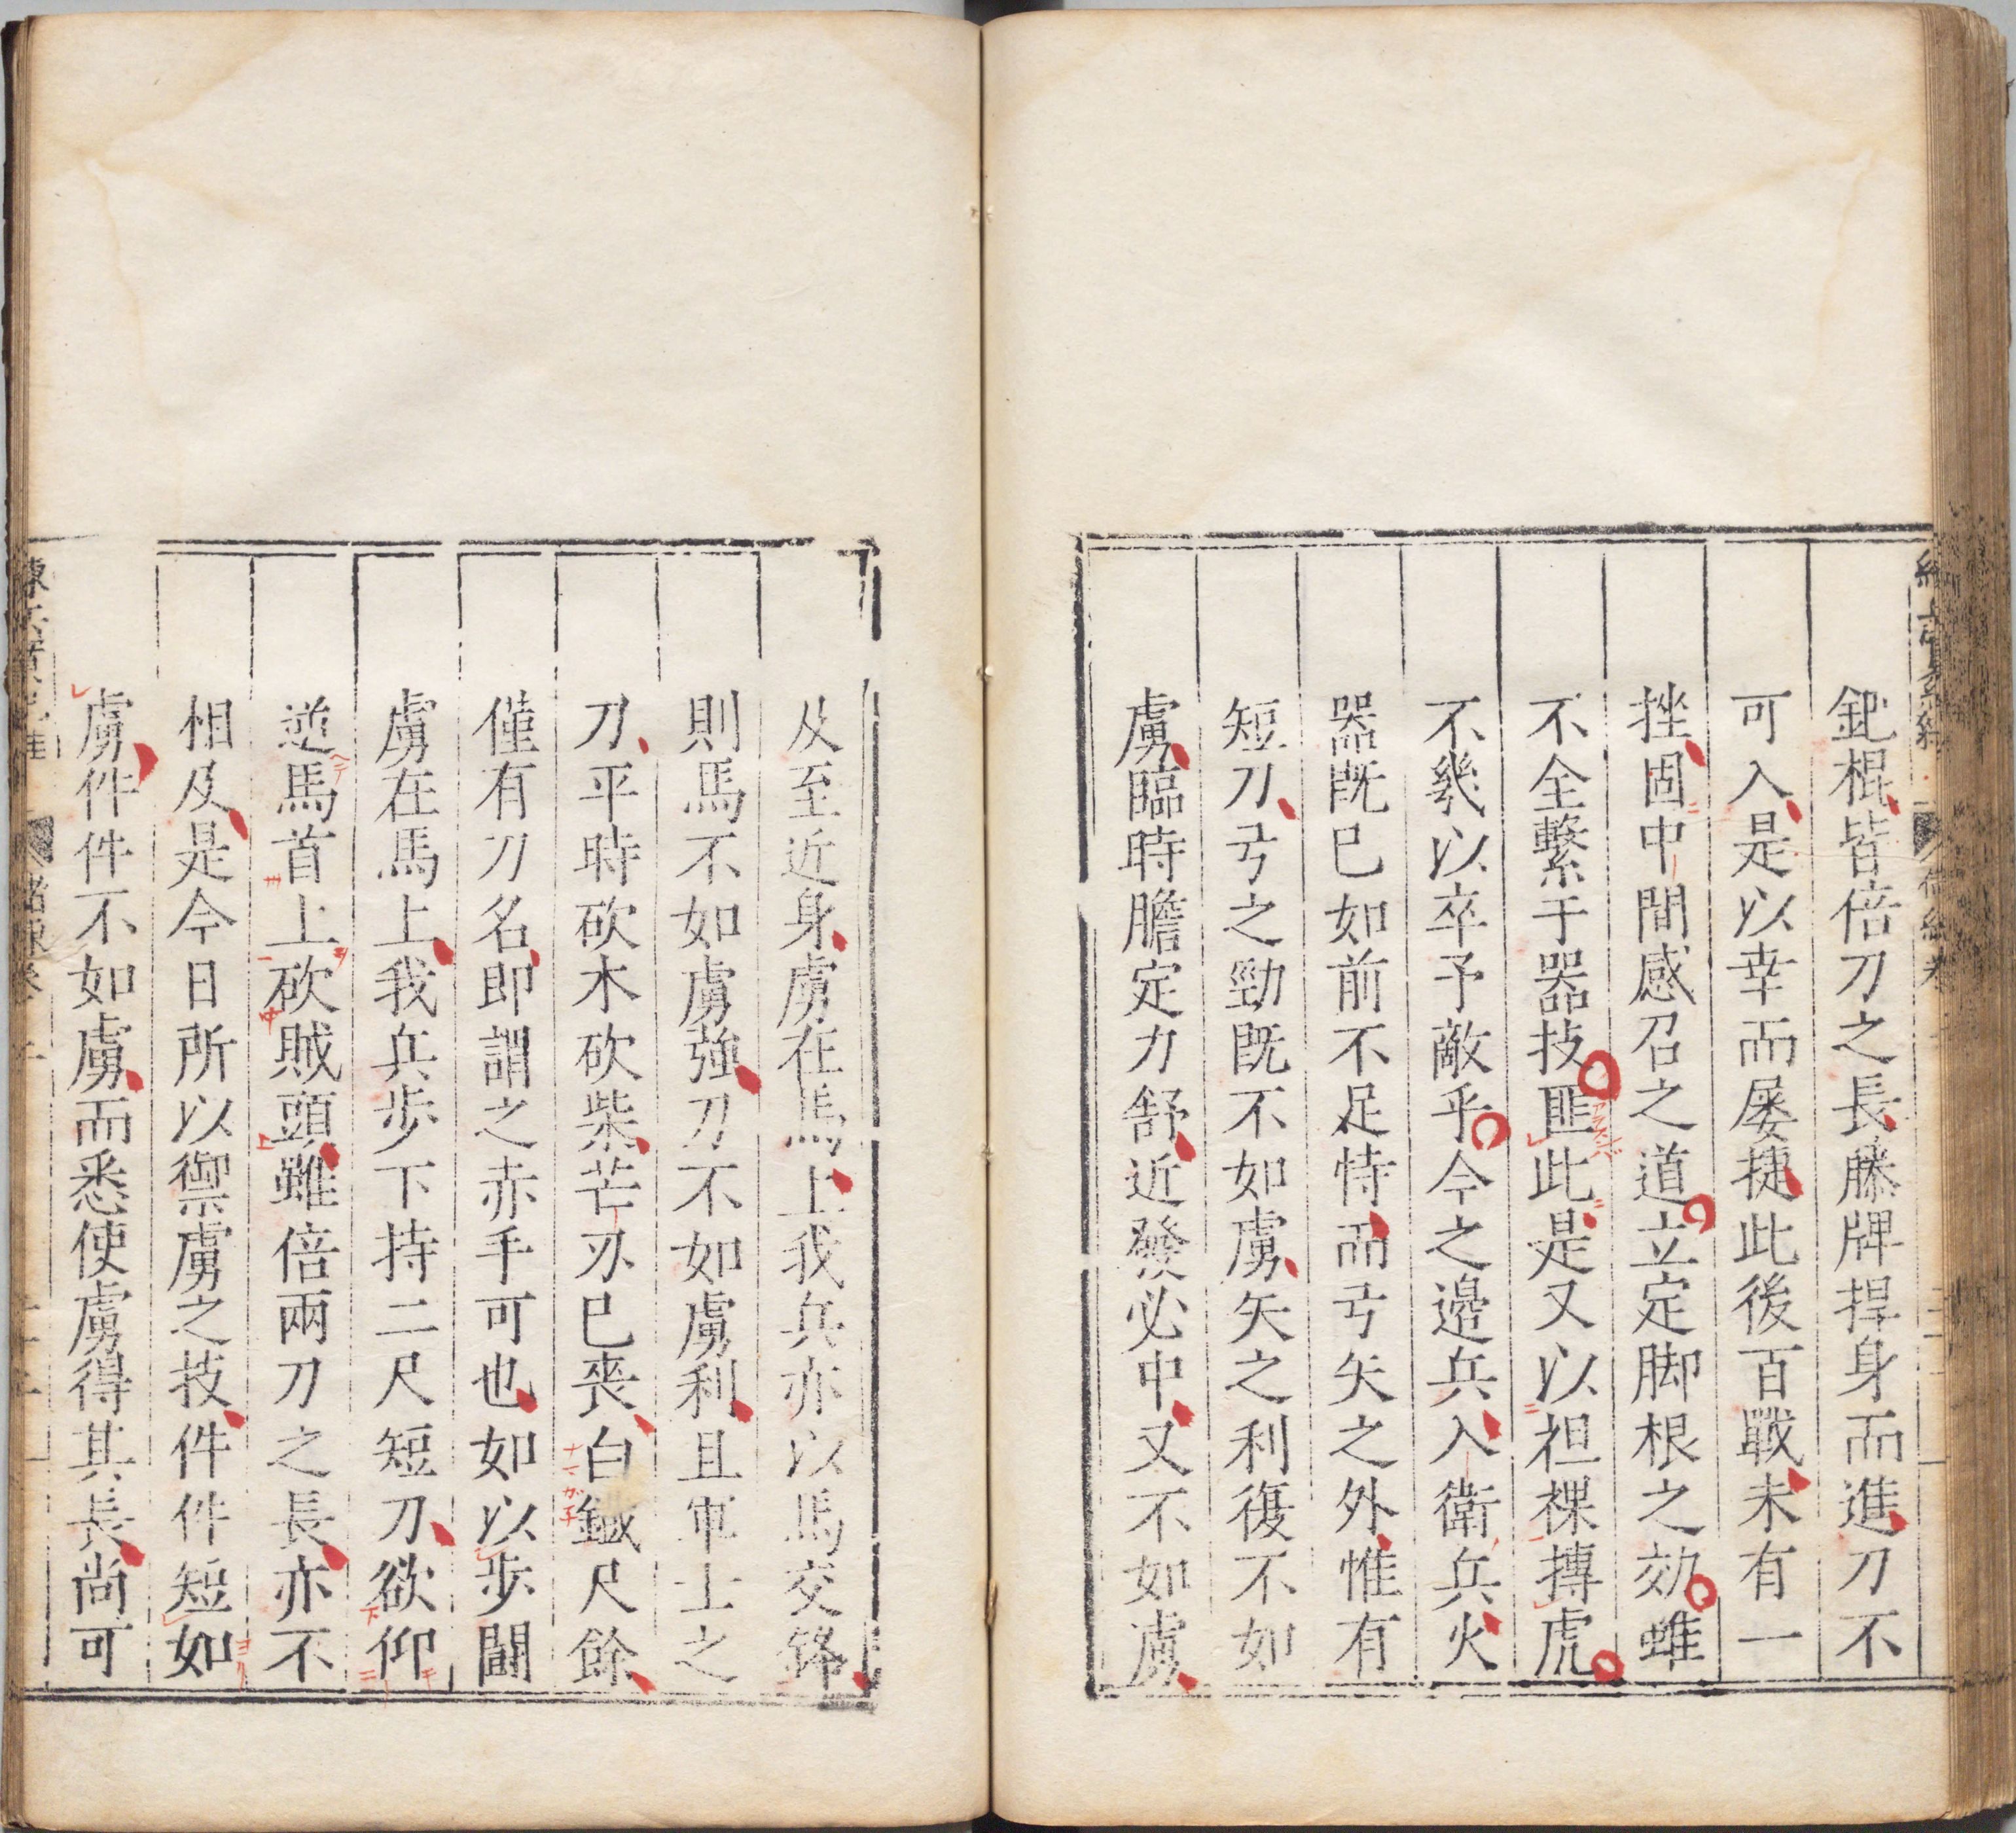 鈀棍皆倍刀之長藤牌捍身而進刀不
可入是以幸而屡捷此後百戰未有一
挫固中間感召之道立定脚根之効雖
不全繫于器技匪此是又以袒裸搏虎
不幾以卒予敵乎今之邉兵入衛兵火
器既巳如前不足恃而弓矢之外惟有
短刀弓之勁既不如虜矢之利復不如
虜臨時膽定力舒近發必中又不如虜
及至近身虜在馬上我兵亦以馬交鋒
則馬不如虜強刀不如虜利且軍士之
刀平時砍木砍柴芒刃巳喪白鐵尺餘
僅有刀名即謂之赤手可也如以歩鬪
虜在馬上我兵歩下持二尺短刀欲仰
逆馬首上砍賊頭雖倍兩刀之長亦不
相及是今日所以禦虜之技件件短如
虜件件不如虜而悉使虜得其長尚可